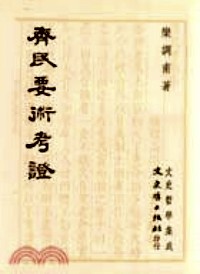 樂調甫著
齊民要術考證
文史哲學集成
文史哲出版社印行